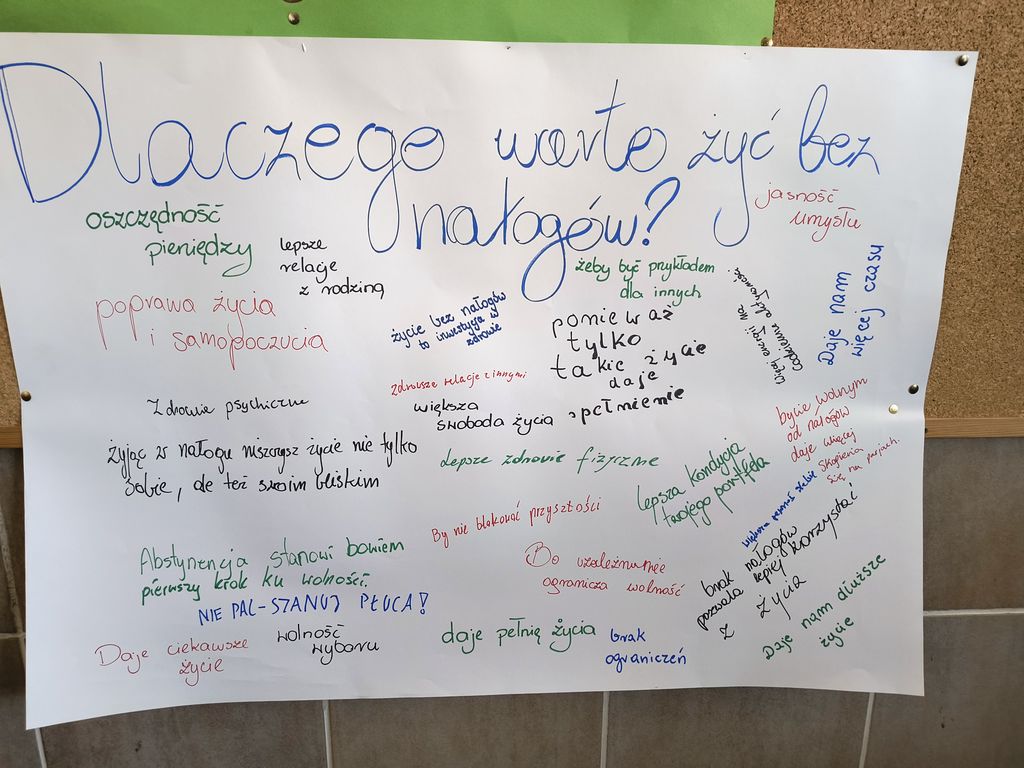 Dlaczego warto żyć bez
nałogów?
jasność
umysłu
oszczędność
pieniędzy
lepsze
relacje
z rodziną
żeby być przykładem
dla innych
Daje nam
więcej czasu
Więcej energii na
codzienne aktywności.
poprawa życia
i samopoczucia
życie bez nałogów
to inwestycja w
zdrowie
ponieważ
tylko
takie życie
daje
spełnienie
zdrowsze relacje z innymi
Zdrowie psychiczne
większa
swoboda życia
bycie wolnym
od nałogów
daje więcej
skupienia
się na pasjach.
żyjąc w nałogu niszczysz życie nie tylko
sobie, ale też swoim bliskim
Lepsze zdrowie fizyczne
lepsza kondycja
twojego portfela
większa pewność siebie
By nie blokować przyszłości
brak nałogów
pozwala lepiej korzystać
z życia
Abstynencja stanowi bowiem
pierwszy krok ku wolności.
Bo uzależnienie
ogranicza wolność
NIE PAL-SZANUJ PŁUCA!
Daje ciekawsze
życie
wolność
wyboru
daje pełnię życia
brak
ograniczeń
Daje nam dłuższe
życie